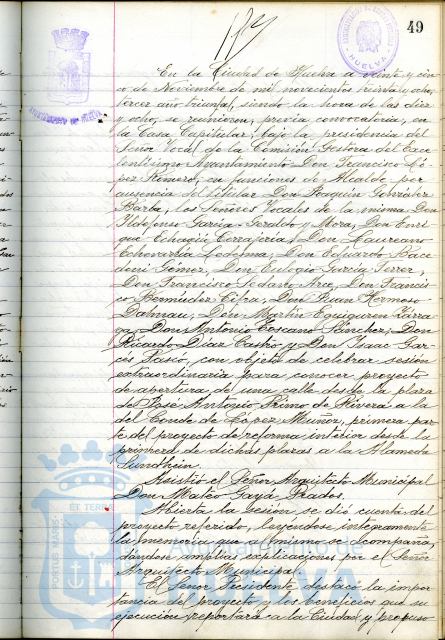 49
AYUNTAMIENTO DE HUELVA
HUELVA
En la Ciudad de Huelva a veinte y cin
co de Noviembre de mil novecientos treinta y ocho,
tercer año triunfal, siendo la hora de las diez
y ocho, se reunieron, previa convocatoria, en
la Casa Capitular, bajo la presidencia del
Señor Vocal de la Comisión Gestora del Exce
lentísimo Ayuntamiento Don Francisco Ló
pez Romero, en funciones de Alcalde por
ausencia del titular Don Joaquín González
Barba, los Señores Vocales de la misma Don
Ildefonso García-Geraldo y Mora, Don Enri
que Echagüe Torrajería, Don Laureano
Echevarría Ledesma, Don Eduardo
Gómez, Don Eulogio García Ferrer,
Don Francisco Arce, Don Francis
co Bermúdez Cifra, Don Juan Hermoso
Dalmau, Don Martín Eguiguren
Don Antonio Toscano Sánchez, Don
Ricardo Díaz Castro y Don Isaac Gar
cés con objeto de celebrar sesión
extraordinaria para conocer proyecto
de apertura de una calle desde la plaza
de José Antonio Primo de Rivera a la
del Conde de López Muñoz, primera par
te del proyecto de reforma interior desde la
primera de dichas plazas a la Alameda
Sundheim.
Asistió el Señor Arquitecto Municipal
Don Mateo Gayá Prados.
Abierta la sesión se dió cuenta del
proyecto referido, leyéndose íntegramente
la memoria que al mismo se acompaña,
dándose amplias explicaciones por el Señor
Arquitecto Municipal.
El Señor Presidente destacó la impor
tancia del proyecto y los beneficios que su
ejecución reportará a la Ciudad y propuso